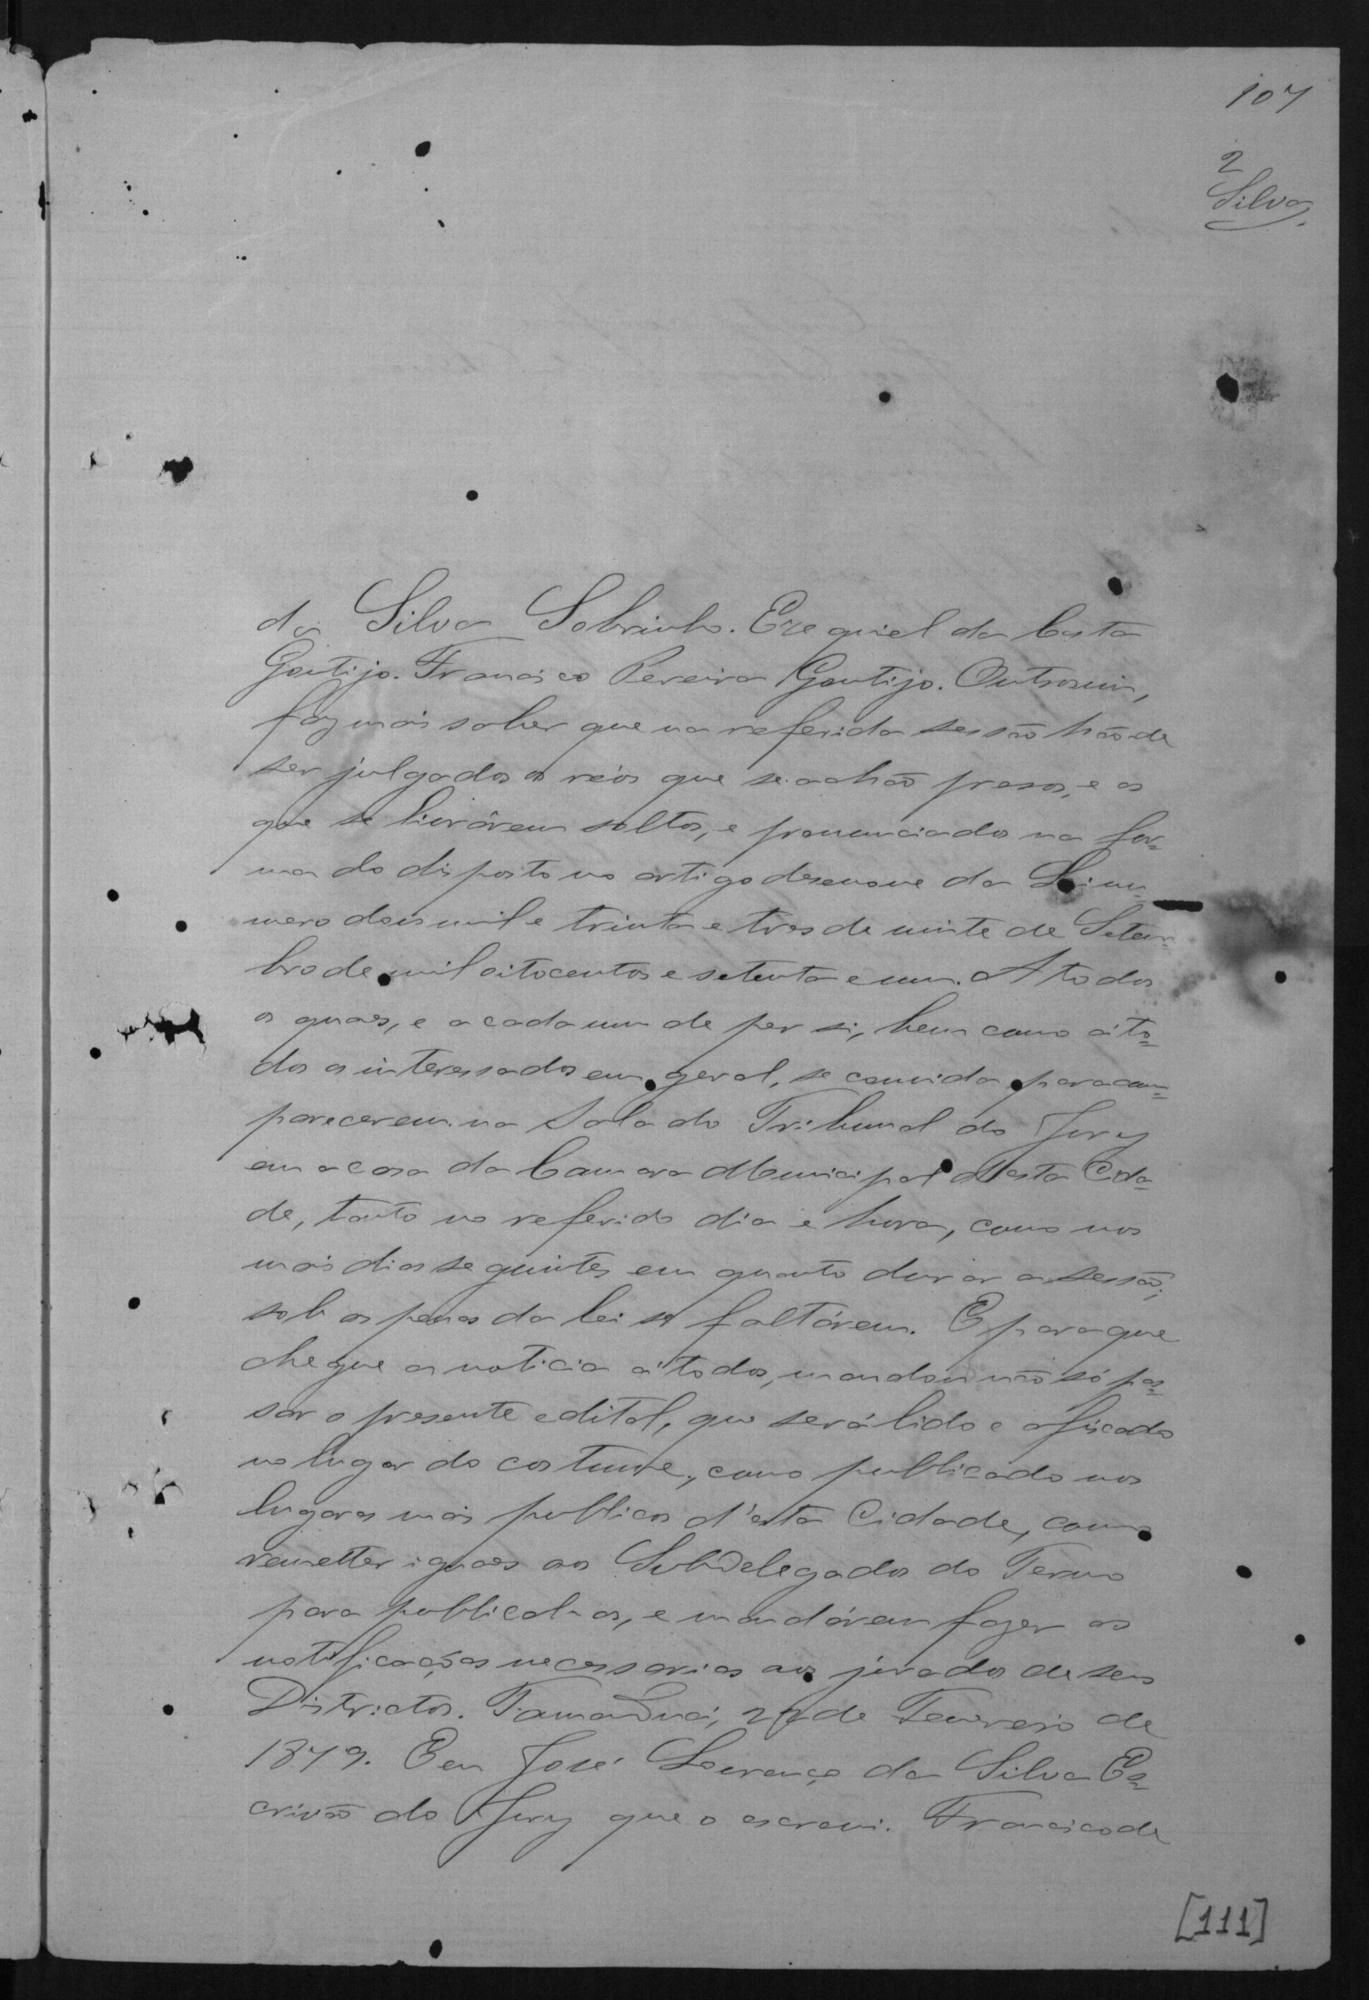 107
2
Silva
da Silva Sobrinho. Ezequiel da Costa
Gontijo. Francisco Pereira Gontijo. Outrosim,
faz mais saber que na referida sessão hão de
ser julgados os réos que se achão presos, e os
que se livrárem soltos, e pronunciados na for=
ma do disposto no artigo desenove da Lei nu=
mero dous mil e trinta e tres de vinte de Setem=
bro de mil oitocentos e setenta e um. A todos
os quaes, e a cada um de per si, bem como á to=
dos os interessados em geral, se convida para com=
parecerem na Sala do Tribunal do Jury
em a casa da Camara Municipal desta Cida=
de, tanto no referido dia e hora, como nos
mais dias seguintes em quanto durar a sessão;
sob as penas da lei se faltárem. E para que
chegue a noticia á todos, mandou não só pas=
sar o presente edital, que será lido e afixado
no lugar do costume, como publicado nos
lugares mais publicos d'esta Cidade, como
remetter iguaes aos Subdelegados do Termo
para publical-os, e mandárem fazer as
notificações necessarias aos jurados de seus
Districtos. Tamanduá, 22 de Fevereiro de
1879. E eu José Lourenço da Silva Es=
crivão do Jury que o escrevi. Francisco de
[111]